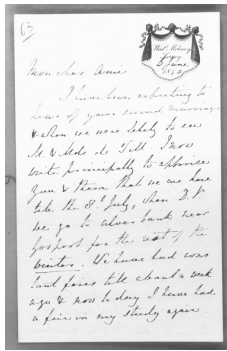 63
5 June
1850
Mon cher Ami
I have been expecting to
hear of your second marriage
& when we were likely to see
M. & Mde de Till. I now
write principally to apprise
you & them that we are here
till the 8th July, when D.V.
we go to Alverbank near
Gosport for the rest of the
Winter. We have had cons
tant fires till about a week
ago & now to day I have had
a fire in my study again.